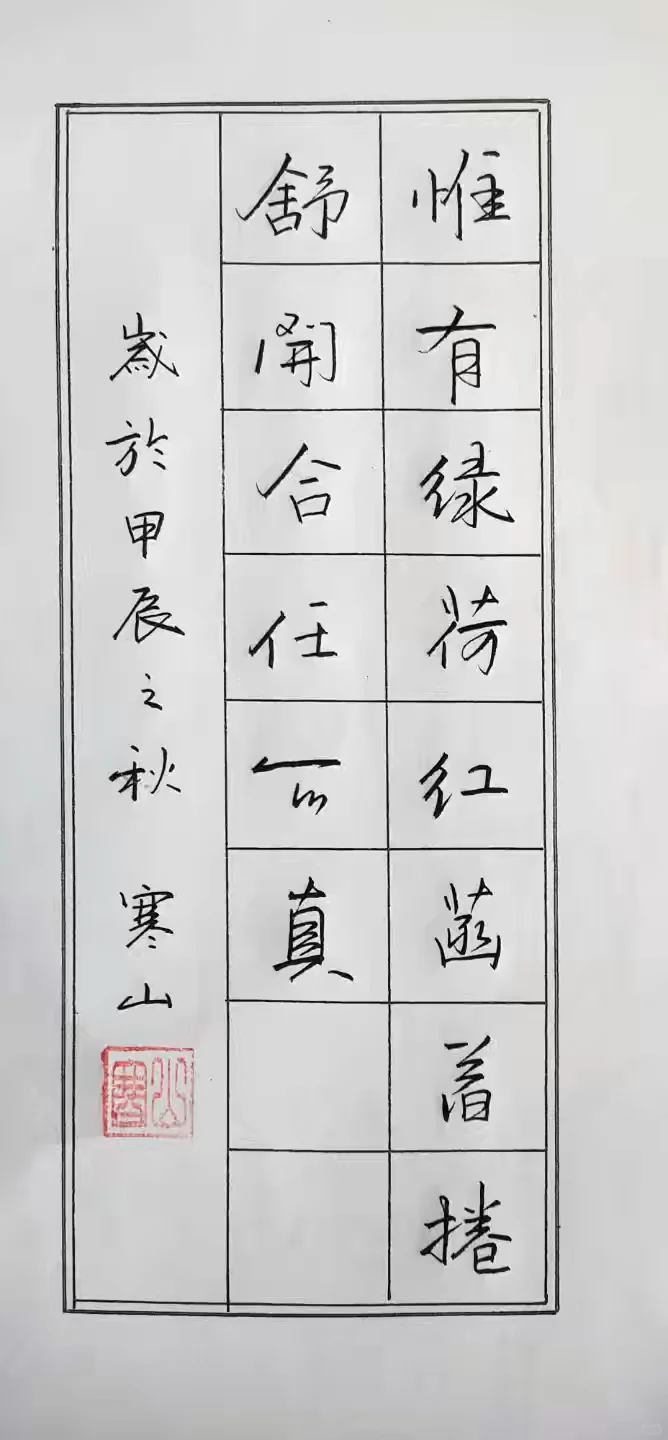 惟有绿荷红菡萏捲
舒開合任天真
歲於甲辰之秋 寒山
寒山